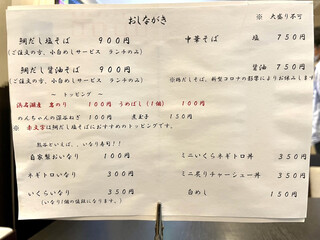 おしながき
※ 大盛り不可
鯛だし塩そば 900円
(ご注文の方、小白めしサービス ランチのみ)
中華そば 塩 750円
鯛だし醤油そば 900円
(ご注文の方、小白めしサービス ランチのみ)
醤油 750円
～ トッピング ～
浜名湖産 岩のり 100円 うめぼし(1個) 100円
のんちゃんの深谷ねぎ 100円 煮玉子 150円
※ 赤文字は鯛だし塩そばにおすすめのトッピングです。
熊谷といえば、、いなり寿司!!
自家製おいなり 100円
ミニいくらネギトロ丼 350円
ネギトロいなり 300円
ミニ炙りチャーシュー丼 350円
いくらいなり 350円
白めし 150円
(いなり1個の値段になります。)